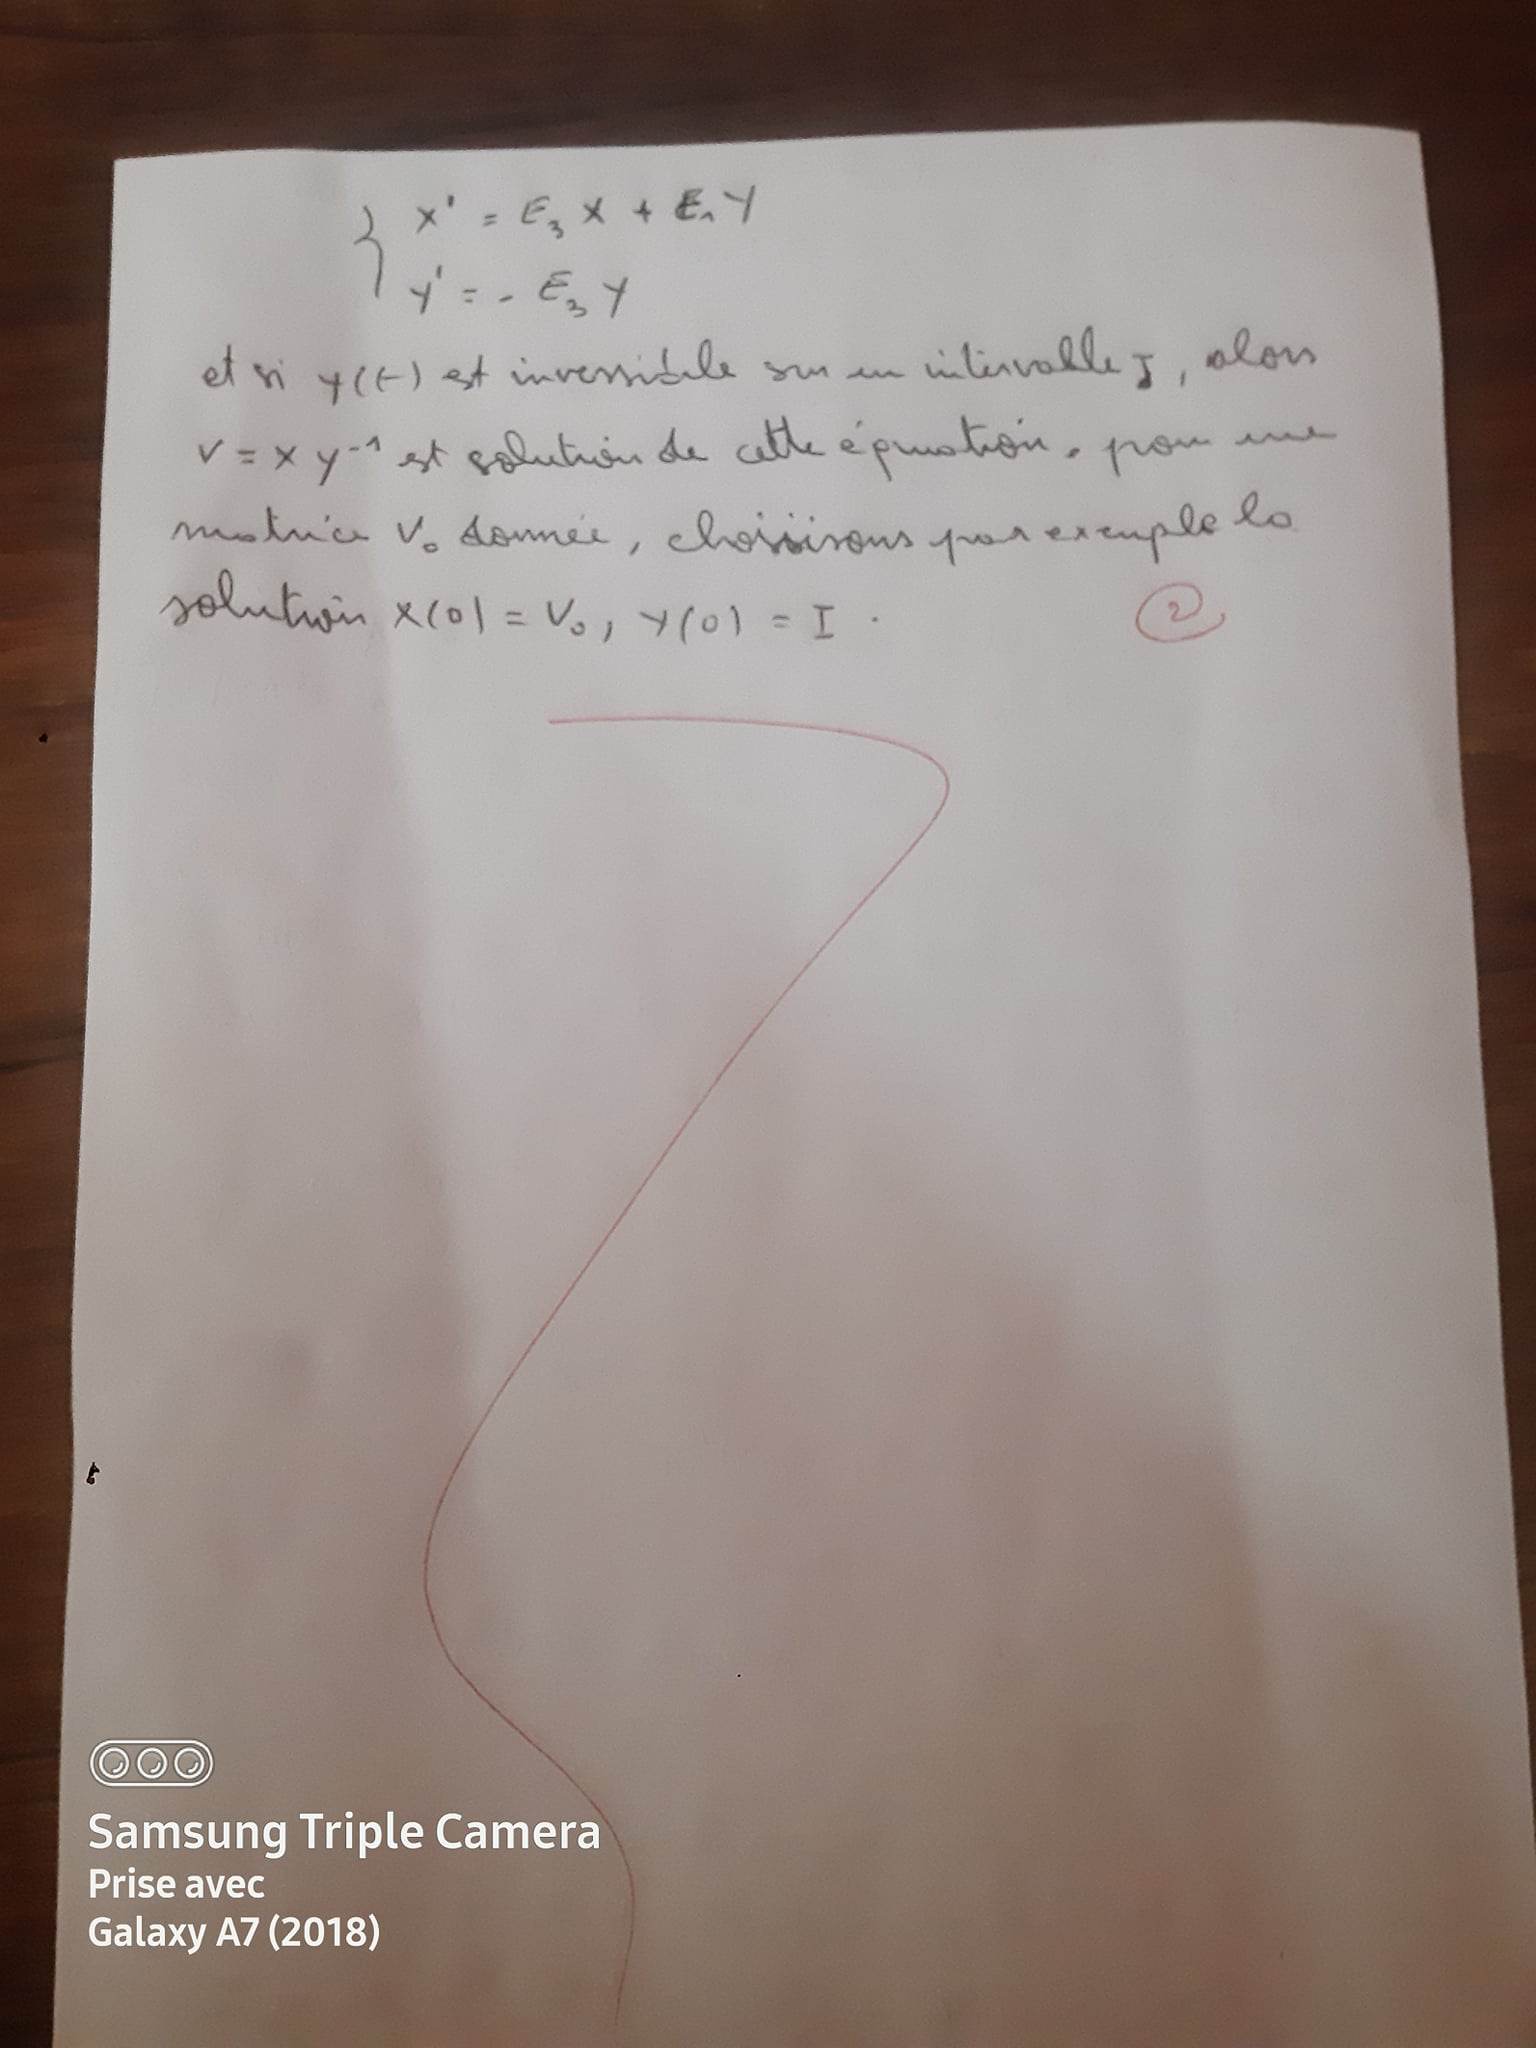 { X' = E₃ X + E₁ Y
Y' = - E₃ Y
et si Y(t) est inversible sur un intervalle J, alors
V = X Y⁻¹ est solution de cette équation. pour une
matrice V₀ donnée, choisisons par exemple la
solution X(0) = V₀, Y(0) = I.
2
Samsung Triple Camera
Prise avec
Galaxy A7 (2018)